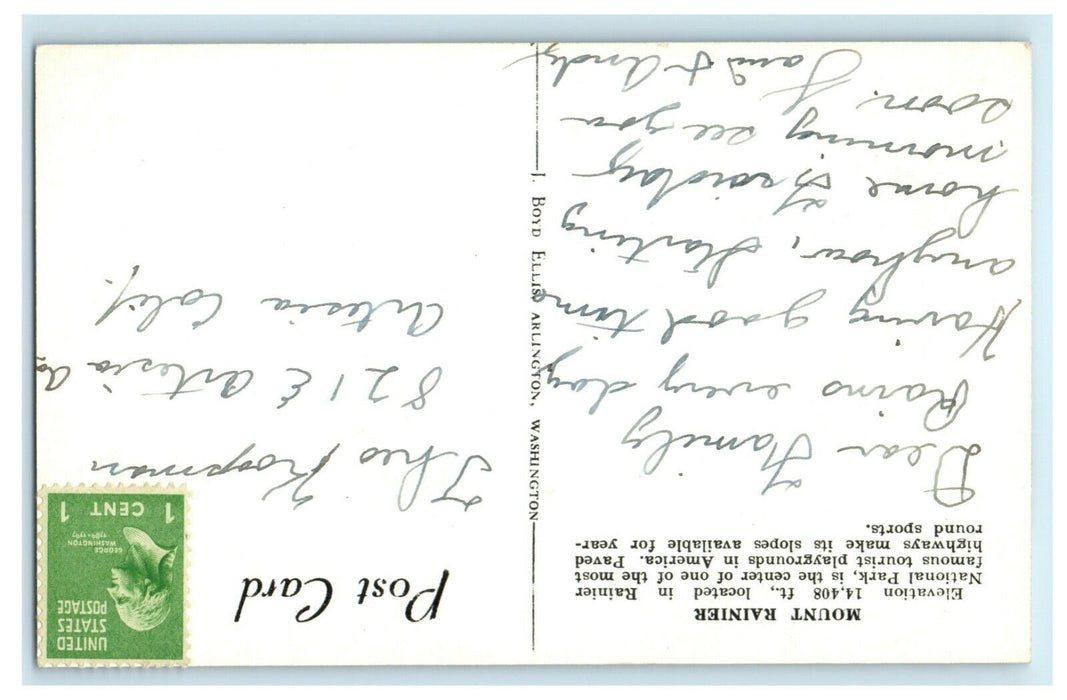 MOUNT RAINIER
Elevation 14,408 ft., located in Rainier
National Park, is the center of one of the most
famous tourist playgrounds in America. Paved
highways make its slopes available for year-
round sports.
Dear Family
Rains every day
Having good time
anyhow, starting
home Friday
morning see you
soon.
& Andy
J. BOYD ELLIS, ARLINGTON, WASHINGTON
Post Card
UNITED
STATES
POSTAGE
GEORGE
WASHINGTON
1789-1797
1 CENT 1
Theo Koopman
821 E Artesia
Artesia Calif.